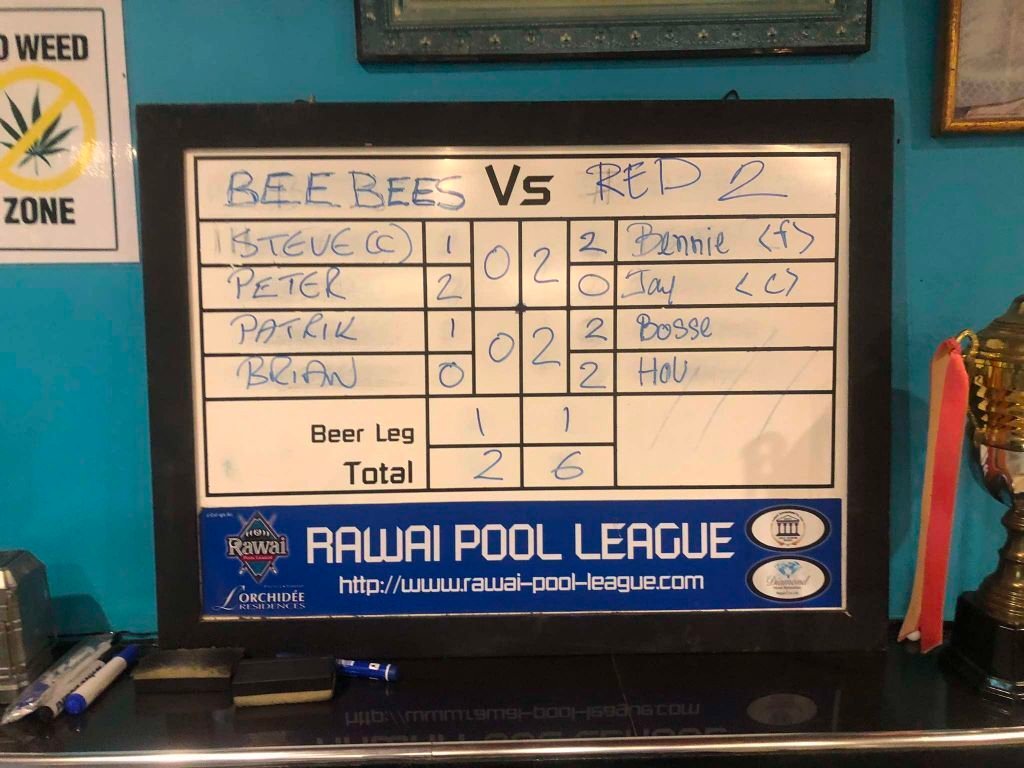 WEED
ZONE
BEE BEES Vs RED 2
STEVE (C) 1 0 2 2 Bennie <f>
PETER 2 0 Jay <c>
PATRIK 1 0 2 2 Bosse
BRIAN 0 2 HOU
Beer Leg 1 1
Total 2 6
Rawai
POOL LEAGUE
RAWAI POOL LEAGUE
http://www.rawai-pool-league.com
L'ORCHIDÉE
RESIDENCES
Diamond